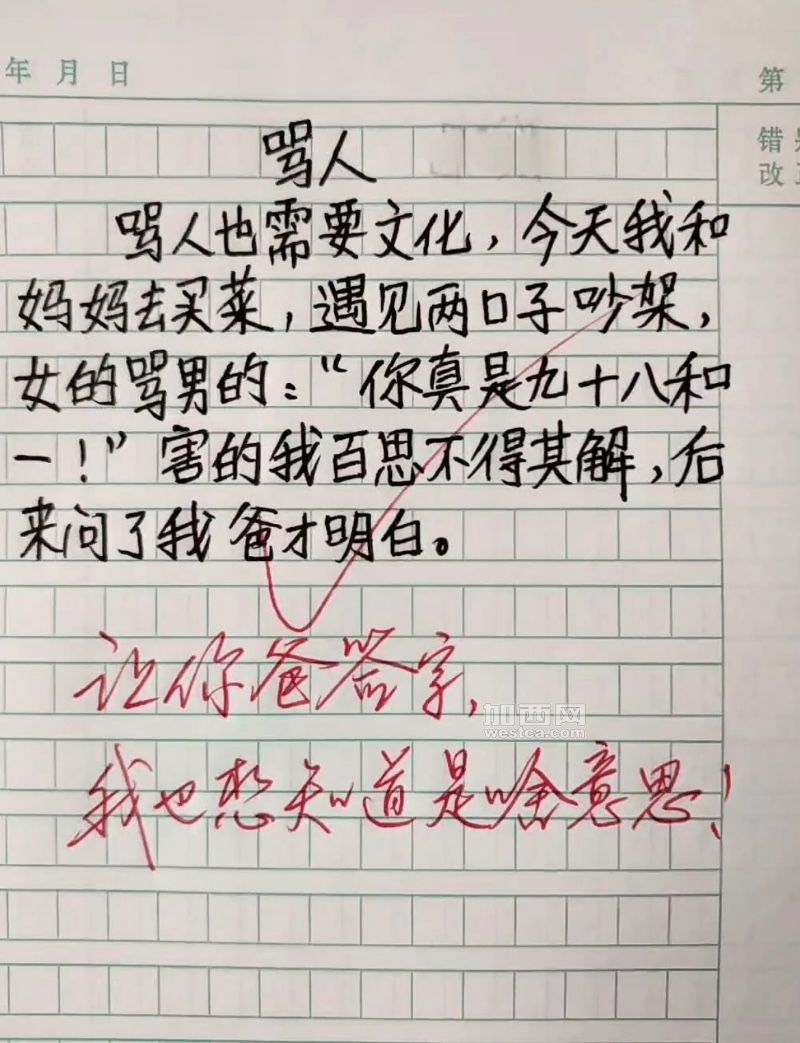 年 月 日
第
错
改
骂人
骂人也需要文化，今天我和
妈妈去买菜，遇见两口子吵架，
女的骂男的：“你真是九十八和
一！”害的我百思不得其解，后
来问了我爸才明白。
让你爸签字，
我也想知道是啥意思！
加西网
westca.com